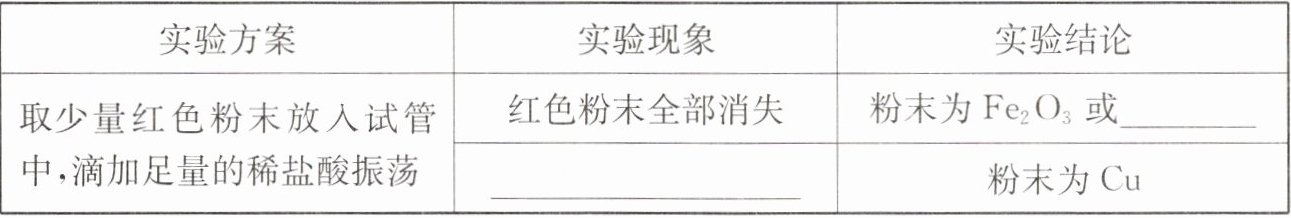 实验方案 实验现象 实验结论
取少量红色粉末放入试管中,滴加足量的稀盐酸振荡
红色粉末全部消失 粉末为 Fe₂O₃ 或________
________ 粉末为 Cu